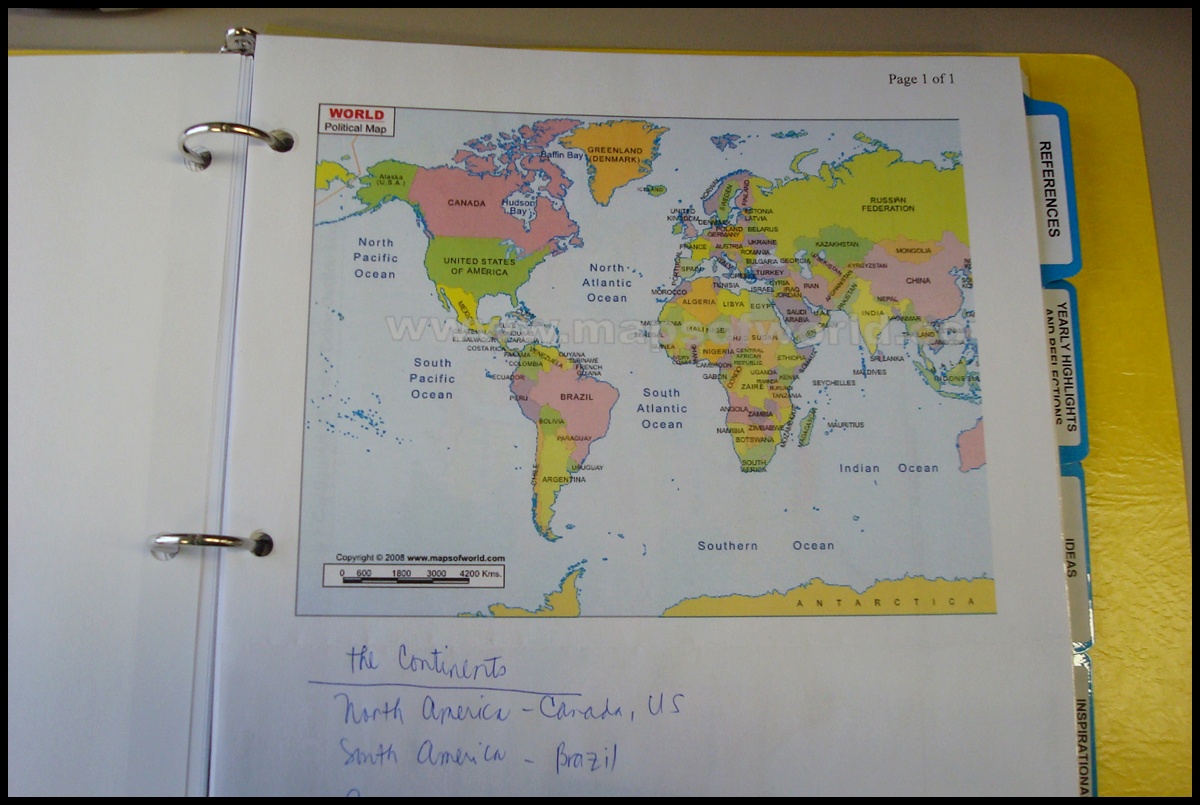 Page 1 of 1
WORLD
Political Map
GREENLAND
(DENMARK)
Baffin Bay
Alaska
(U.S.A.)
CANADA
Hudson
Bay
ICELAND
NORWAY
SWEDEN
FINLAND
RUSSIAN
FEDERATION
UNITED
KINGDOM
ESTONIA
LATVIA
DENMARK
POLAND
BELARUS
GERMANY
North
Pacific
Ocean
UNITED STATES
OF AMERICA
North
Atlantic
Ocean
FRANCE
AUSTRIA
UKRAINE
ROMANIA
KAZAKHSTAN
MONGOLIA
PORTUGAL
SPAIN
ITALY
BULGARIA
GEORGIA
UZBEKISTAN
KYRGYZSTAN
GREECE
TURKEY
CHINA
TUNISIA
SYRIA
ISRAEL
IRAQ
JORDAN
IRAN
AFGHANISTAN
PAKISTAN
MOROCCO
ALGERIA
LIBYA
EGYPT
SAUDI
ARABIA
U.A.E
NEPAL
INDIA
MYANMAR
MEXICO
www.mapsofworld.c
MALI
NIGER
SUDAN
EL SALVADOR
COSTA RICA
PANAMA
VENEZUELA
GUYANA
SURINAME
FRENCH
GUIANA
COLOMBIA
ECUADOR
NIGERIA
CENTRAL
AFRICAN
REPUBLIC
ETHIOPIA
CAMEROON
SRI LANKA
MALDIVES
South
Pacific
Ocean
PERU
BRAZIL
South
Atlantic
Ocean
GABON
CONGO
UGANDA
KENYA
RWANDA
BURUNDI
ZAIRE
TANZANIA
SEYCHELLES
INDONESIA
BOLIVIA
ANGOLA
ZAMBIA
MOZAMBIQUE
MADAGASCAR
MAURITIUS
PARAGUAY
NAMIBIA
ZIMBABWE
BOTSWANA
CHILE
URUGUAY
ARGENTINA
SOUTH
AFRICA
Indian Ocean
Southern Ocean
Copyright © 2008 www.mapsofworld.com
0 600 1800 3000 4200 Kms.
ANTARCTICA
the Continents
North America - Canada, US
South America - Brazil
REFERENCES
YEARLY HIGHLIGHTS
AND REFLECTIONS
IDEAS
INSPIRATIONA